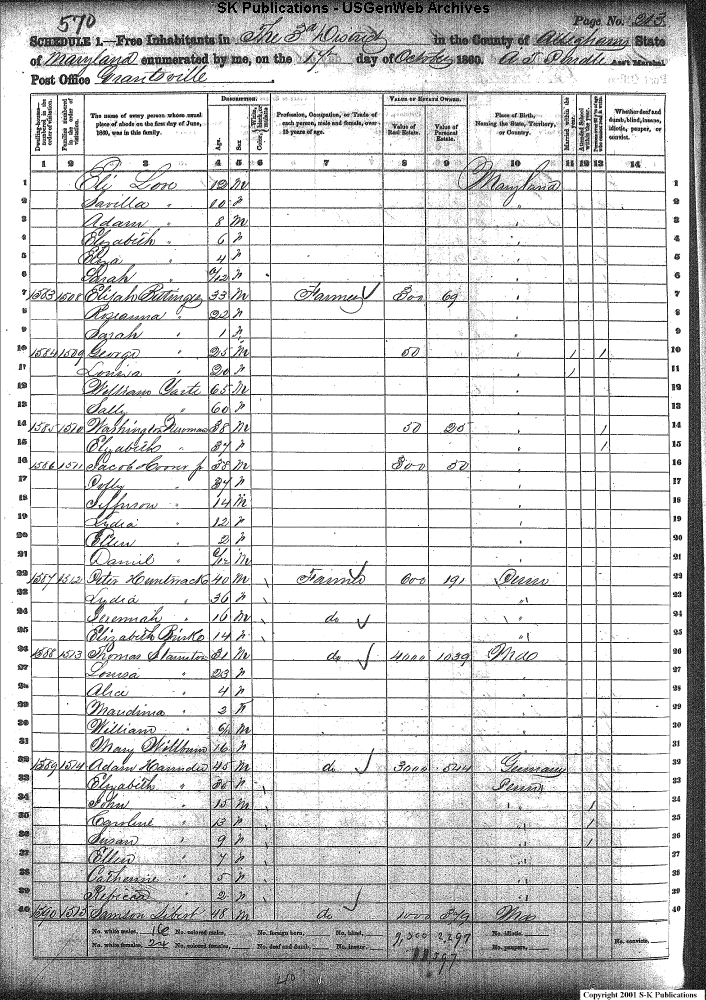 SK Publications - USGenWeb Archives
570
Page No. 213
SCHEDULE 1.—Free Inhabitants in The 3d District in the County of Alleghany State
of Maryland enumerated by me, on the 17th day of October 1860. Ass't Marshal
Post Office Grantsville
Dwelling-houses—numbered in the order of visitation.
Families numbered in the order of visitation.
The name of every person whose usual place of abode on the first day of June, 1860, was in this family.
DESCRIPTION.
Age.
Sex.
Color, White, black, or mulatto.
Profession, Occupation, or Trade of each person, male and female, over 15 years of age.
VALUE OF ESTATE OWNED.
Value of Real Estate.
Value of Personal Estate.
Place of Birth, Naming the State, Territory, or Country.
Married within the year.
Attended School within the year.
Whether deaf and dumb, blind, insane, idiotic, pauper, or convict.
1 2 3 4 5 6 7 8 9 10 11 12 13 14
1 Eli Love 12 M Maryland 1
2 Savilla " 10 f 2
3 Adam " 8 M " 3
4 Elizabeth " 6 f " 4
5 Eliza " 4 f " 5
6 Sarah " /12 f " 6
7 1583 1508 Elijah 33 M Farmer 300 69 " 7
8 Roseanna " 22 f " 8
9 Sarah " 1 f " 9
10 1584 1509 George " 25 M 50 " 1 1 10
11 Louisa " 20 f " 1 11
12 William 65 M " 12
13 Sally " 60 f " 13
14 1585 1510 Washington Newman 38 M 50 25 " 1 14
15 Elizabeth " 37 f " 1 15
16 1586 1511 Jacob Hoover jr 38 M 300 50 " 16
17 Polly " 37 f " 17
18 Jefferson " 14 M " 18
19 Lydia " 12 f " 19
20 Ellen " 2 f " 20
21 Daniel " /12 M " 21
22 1587 1512 Peter 40 M Farmer 600 191 Penn 22
23 Lydia " 36 f " 23
24 Jeremiah " 16 M do " 24
25 Elizabeth 14 f " 25
26 1588 1513 Thomas 31 M do 4000 1039 Md 26
27 Louisa " 23 f 27
28 Alice " 4 f 28
29 " 2 f 29
30 William " M 30
31 Mary 16 f 31
32 1589 1514 Adam 45 M do 3000 544 Germany 32
33 Elizabeth " 36 f Penn 33
34 John " 15 M " 1 34
35 Caroline " 13 f " 1 35
36 Susan " 9 f " 1 36
37 Ellen " 7 f " 37
38 Catherine " 5 f " 38
39 Rebecca " 2 f " 39
40 1590 1515 Samson 48 M do 1000 379 Md 40
No. white males, 16 No. colored males, No. foreign born, No. blind, 9,300 2,297 No. idiotic,
No. white females, 24 No. colored females, No. deaf and dumb, No. insane, No. paupers, No. convicts,
40
Copyright 2001 S-K Publications